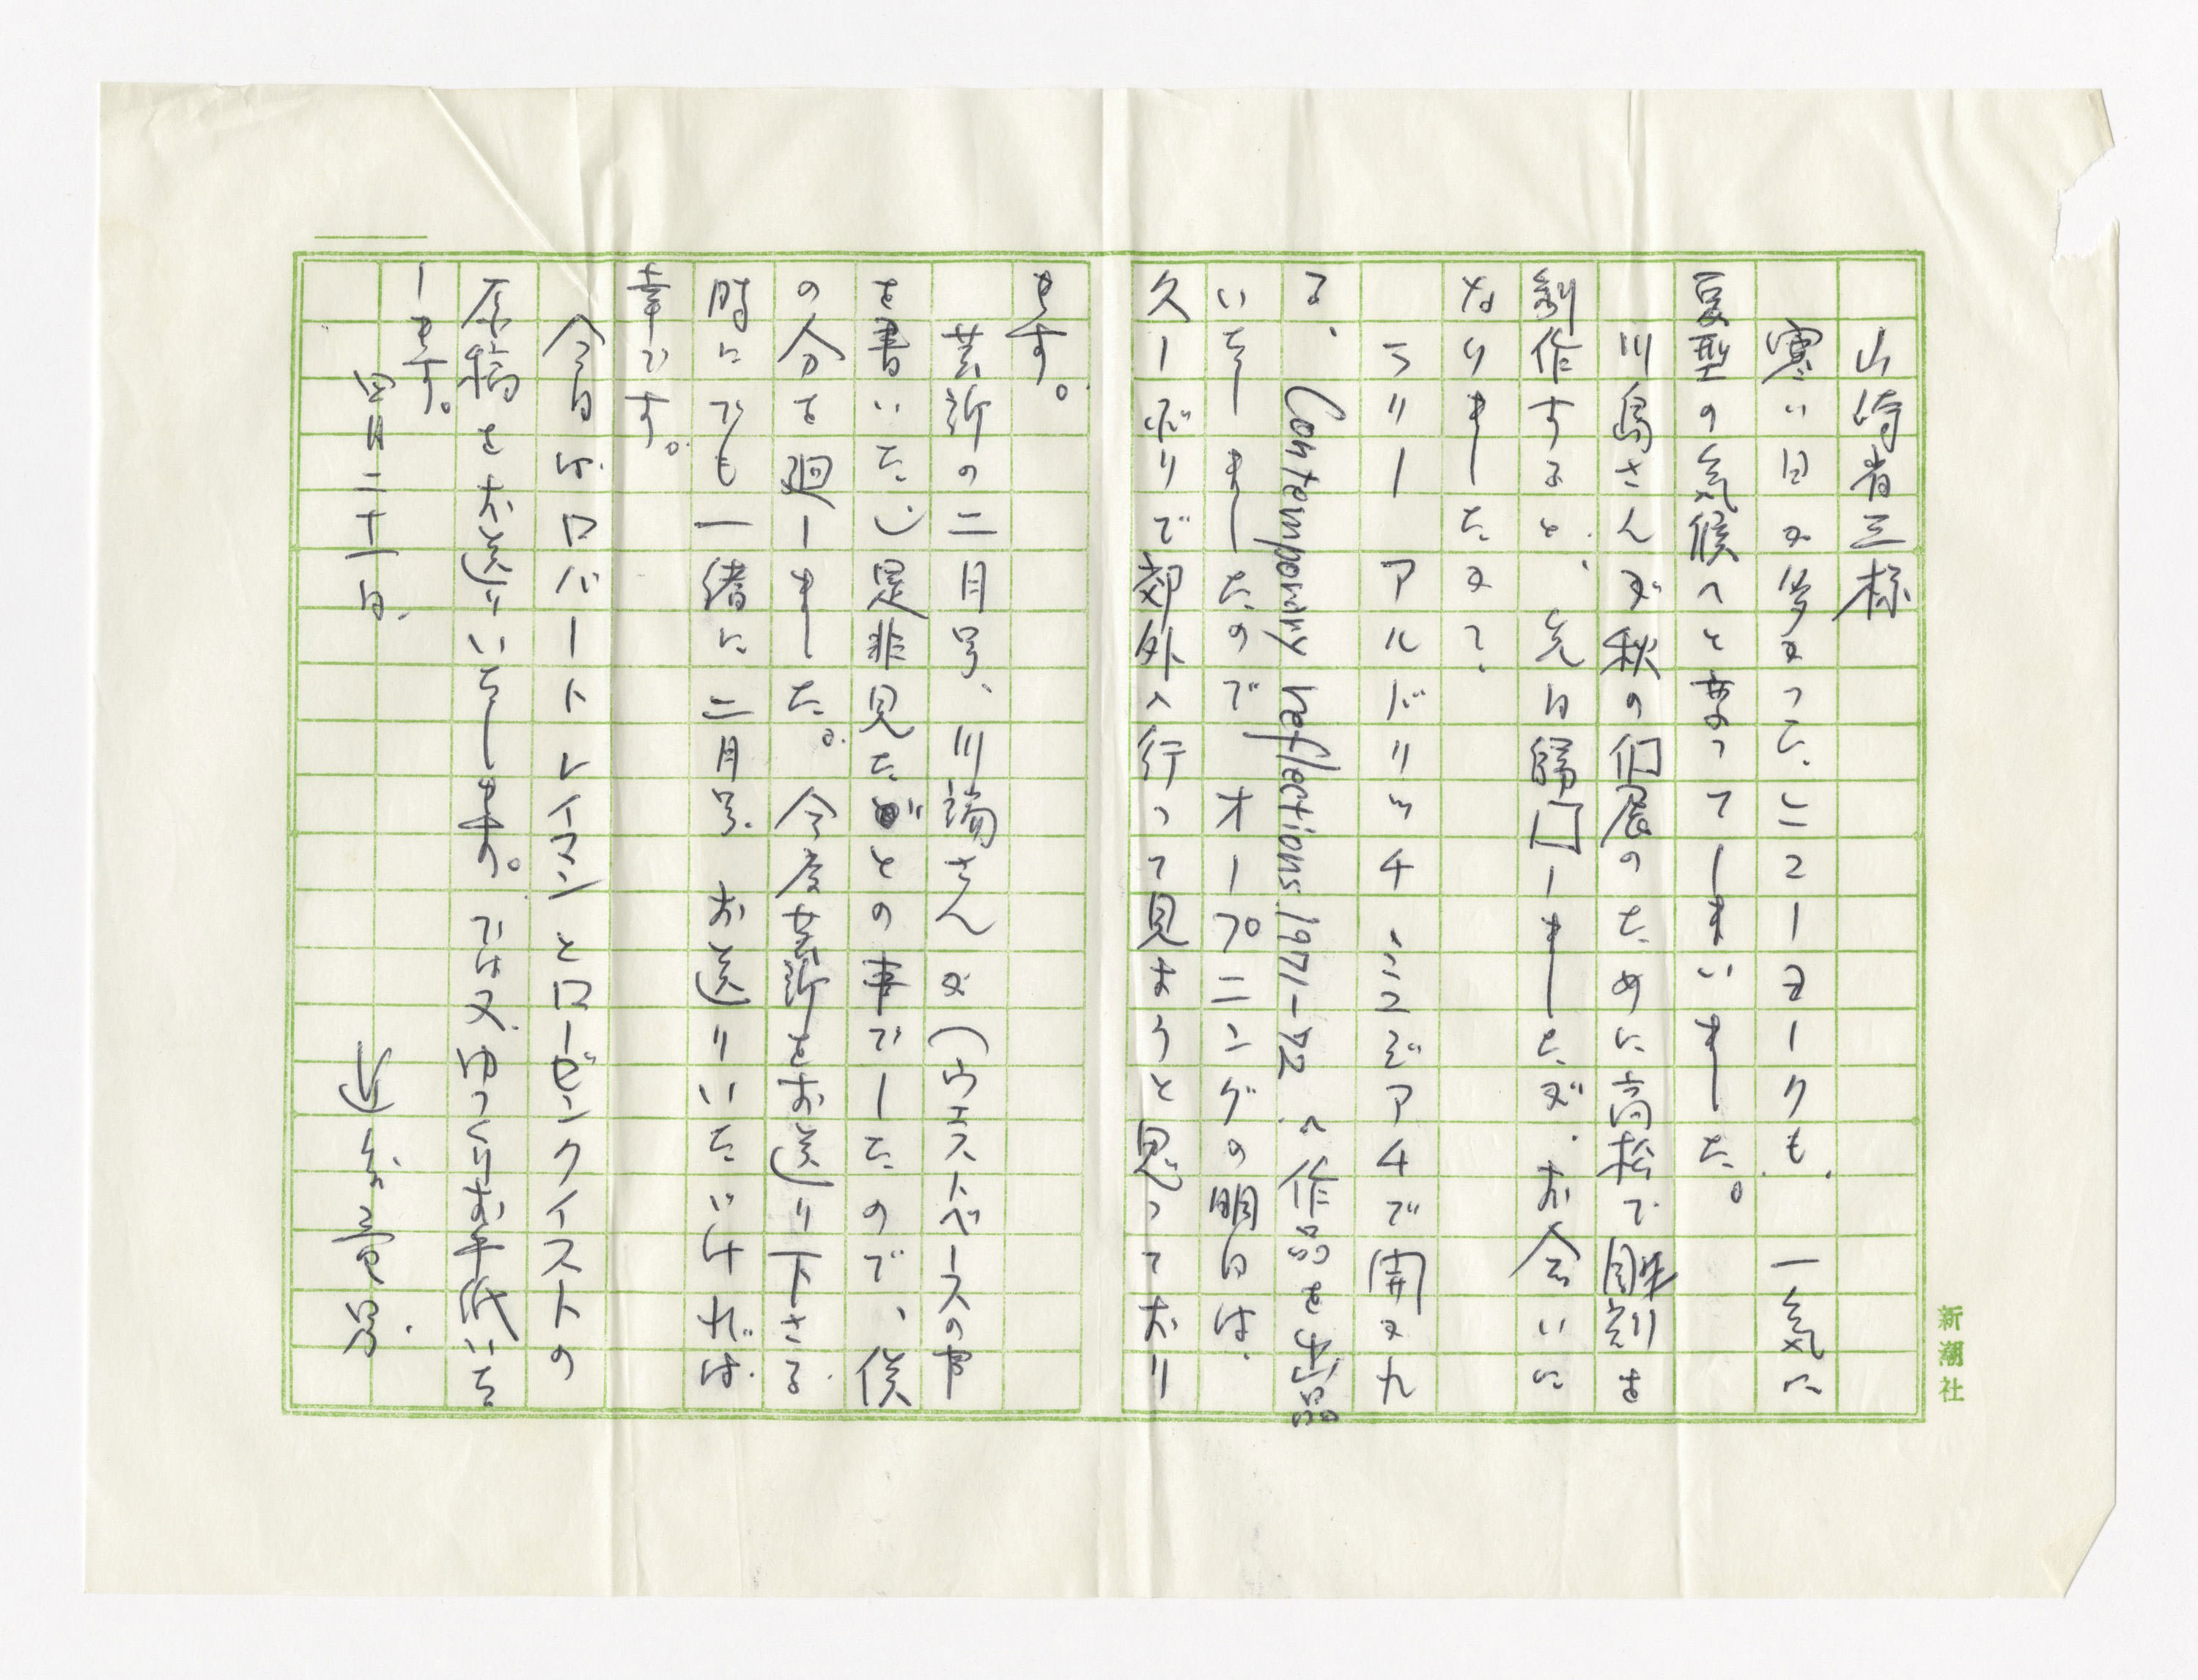 山崎省三様
寒い日が多かったニューヨークも、一気に
夏型の気候へと変ってしまいました。
川島さんが秋の個展のために高松で彫刻を
創作すると、先日帰国しましたが、お会いに
なりましたかて、
ラリー アルドリッチ ミュゼアムで開かれ
る、Contemporary reflections 1971-72 へ作品を出品
いたしましたのでオープニングの明日は、
久しぶりで郊外へ行って見ようと思っており
ます。
芸新の二月号、川端さんが（ウェストベースの事
を書いた）是非見たがとの事でしたので、僕
の分を廻しました。今度芸新をお送り下さる
時にでも一緒に二月号お送りいただければ
幸です。
今日はロバートレイマンとローゼンクイストの
原稿をお送りいたします。では又ゆっくりお手紙いた
します。
四月二十一日、
新潮社